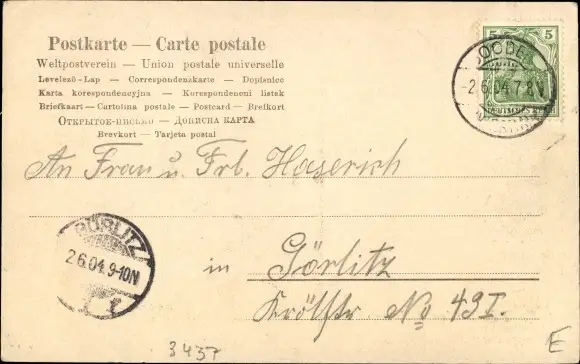 Postkarte — Carte postale
Weltpostverein — Union postale universelle
Levelező-Lap — Correspondenzkarte — Dopisnice
Karta korespondencyjna — Korespondenční listek
Briefkaart — Cartolina postale — Postcard — Brefkort
Открытое письмо — Дописна карта
Brevkort — Tarjeta postal
5 5
-2.6.04.7-8V
An Frau u. Frl. Haserich
GÖRLITZ
2.6.04.9-10N
in Görlitz
Krölstr No 49 I.
3437
E